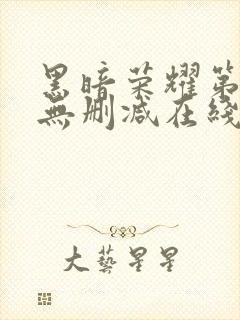 黑暗荣耀第
無刪减在綫
大藝星星